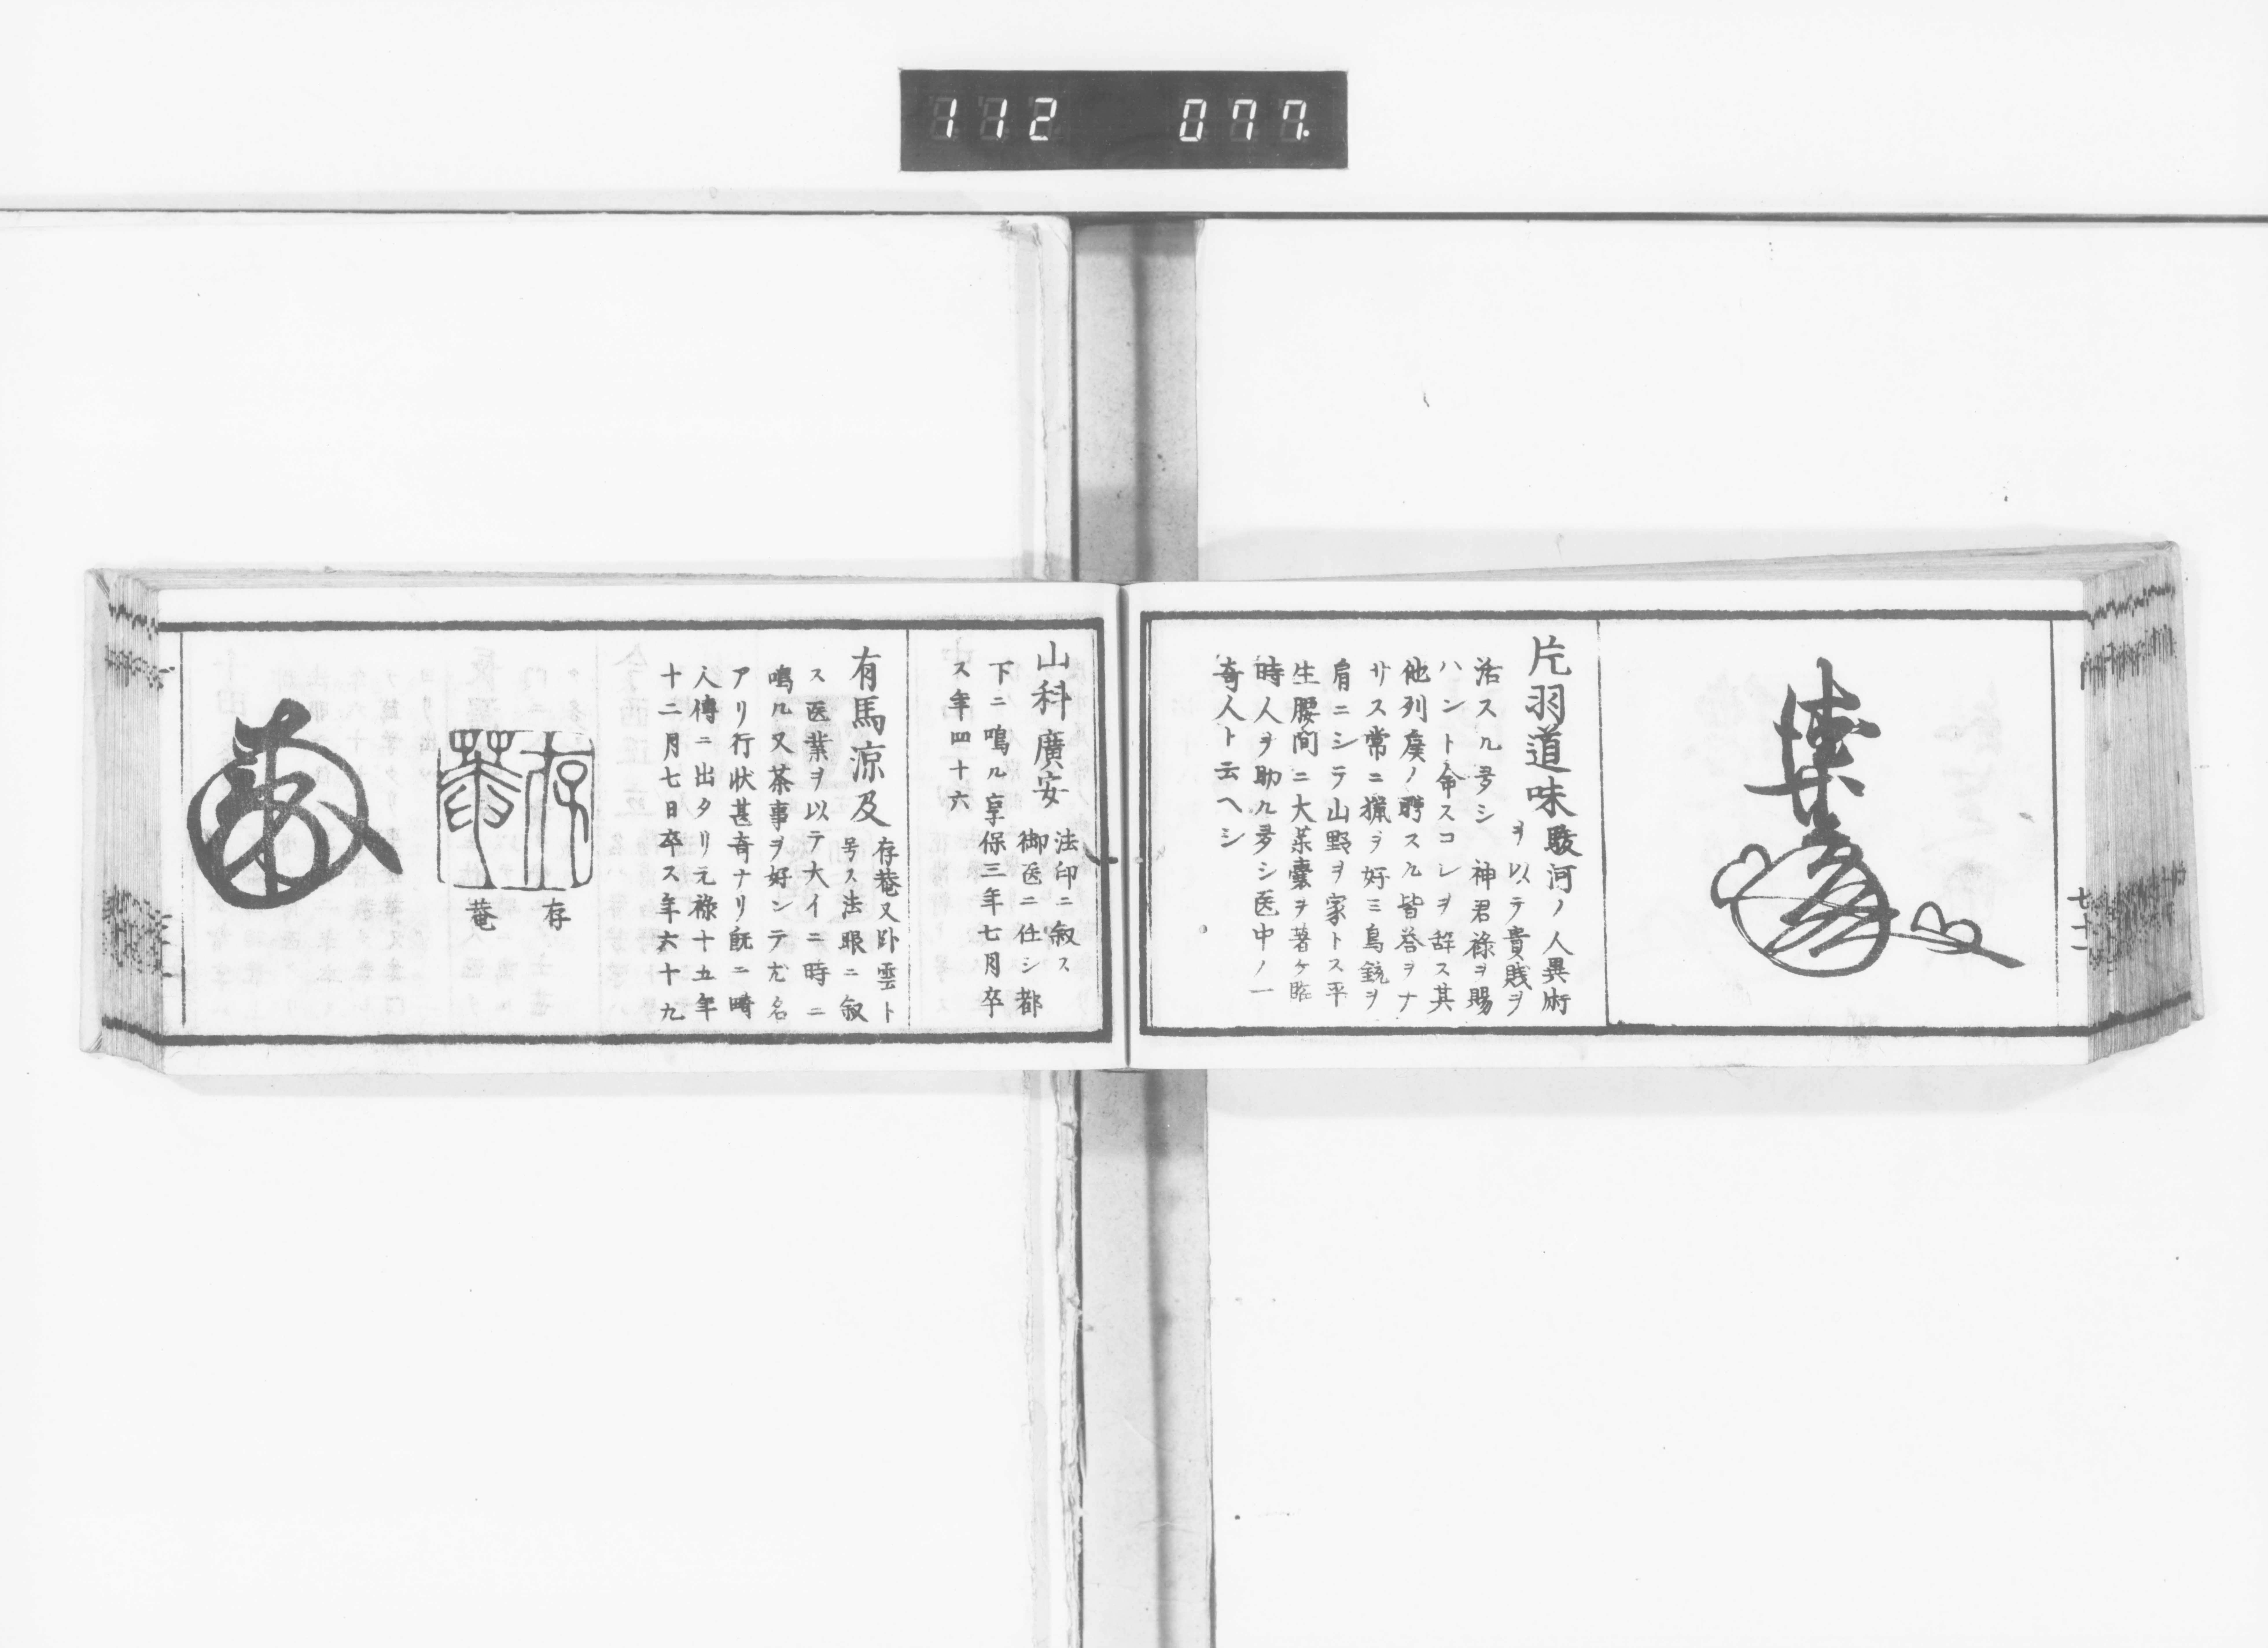 112 077.
七十一
片羽道味 駿河ノ人異術
ヲ以テ貴賤ヲ
活スル多シ 神君祿ヲ賜
ハント命スコレヲ辞ス其
他列矦ノ聘スル皆荅ヲナ
サス常ニ獵ヲ好ミ鳥銃ヲ
肩ニシテ山野ヲ家トス平
生腰間ニ大藥囊ヲ著ケ臨
時人ヲ助ル多シ医中ノ一
奇人ト云ヘシ
山科廣安 法印ニ叙ス
御医ニ仕シ都
下ニ鳴ル享保三年七月卒
ス年四十六
有馬涼及 存菴又卧雲ト
号ス法眼ニ叙
ス医業ヲ以テ大イニ時ニ
鳴ル又茶事ヲ好ンテ尤名
アリ行状甚奇ナリ既ニ畸
人傳ニ出タリ元祿十五年
十二月七日卒ス年六十九
存菴
存
菴